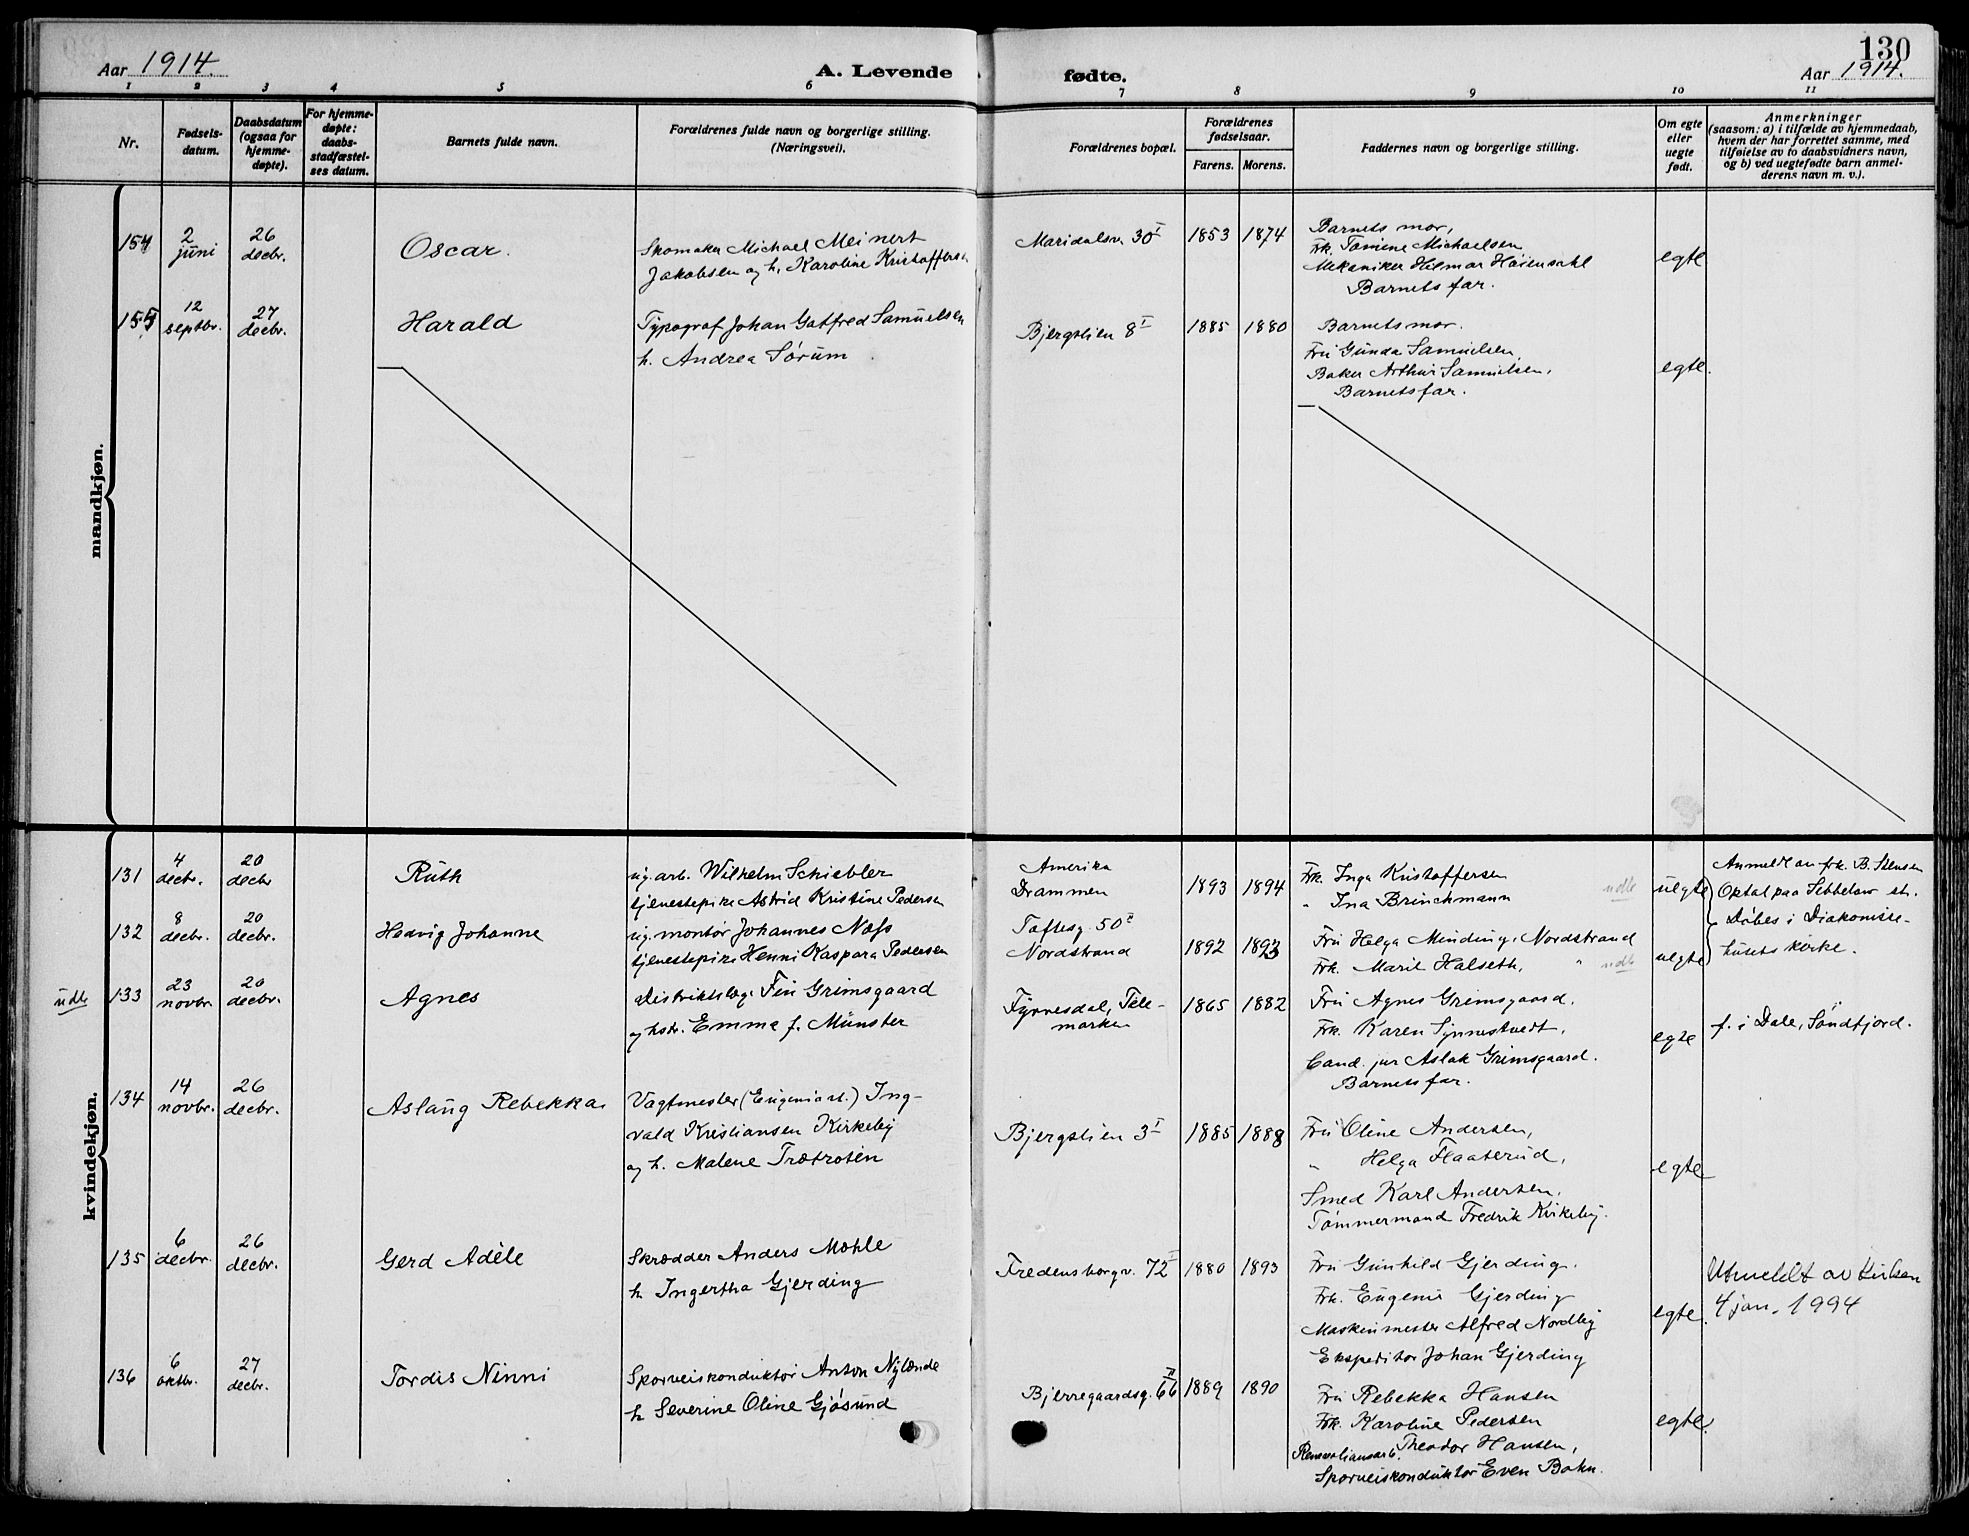 130
Aar 1914.
A. Levende fødte.
Aar 1914.
1 2 3 4 5 6 7 8 9 10 11
Nr.
Fødsels-
datum.
Daabsdatum
(ogsaa for
hjemme-
døpte).
For hjemme-
døpte:
daabs-
stadfæstel-
ses datum.
Barnets fulde navn.
Forældrenes fulde navn og borgerlige stilling.
(Næringsvei).
Forældrenes bopæl.
Forældrenes
fødselsaar.
Farens. Morens.
Faddernes navn og borgerlige stilling.
Om egte
eller
uegte
født.
Anmerkninger
(saasom: a) i tilfælde av hjemmedaab,
hvem der har forrettet samme, med
tilføielse av to daabsvidners navn,
og b) ved uegtefødte barn anmel-
derens navn m. v.).
mandkjøn.
154
2
juni
26
decbr.
Oscar.
Skomaker Michael Meinert
Jakobsen og h. Karoline Kristoffersen
Maridalsv. 30 I
1853 1874
Barnets mor,
Frk. Tomine Michaelsen
Mekaniker Hilmar Høiensahl
Barnets far.
egte
155
12
septbr.
27
decbr.
Harald
Typograf Johan Gotfred Samuelsen
h. Andrea Sørum
Bjergslien 8 I
1885 1880
Barnets mor.
Fru Gunda Samuelsen,
Baker Arthur Samuelsen,
Barnets far.
egte.
kvindekjøn.
131
4
decbr.
20
decbr
Ruth
ug. arb. Wilhelm Schiebler
tjenestepike Astrid Kristine Pedersen
Amerika
Drammen
1893 1894
Frk. Inga Kristoffersen
" Ina Brinchmann
udb
uegte
Anmeldt av frk. B. Stensen
Optat paa Sebbelow st.
Døbes i Diakonisse-
husets kirke.
132
8
decbr.
20
decbr.
Hedvig Johanne
ug. montør Johannes Næss
tjenestepike Henni Kaspara Pedersen
Toftesg. 50 I
Nordstrand
1892 1893
Fru Helga Minding, Nordstrand
Frk. Marit Halseth, "
udb
uegte
udb
133
23
novbr.
20
decbr.
Agnes
Distriktslæge Finn Grimsgaard
og hstr. Emma f. Münster
Fyrresdal, Tele-
marken
1865 1882
Fru Agnes Grimsgaard.
Frk. Karen Synnestvedt,
Cand. jur Aslak Grimsgaard.
Barnets far.
egte
f. i Dale, Søndfjord.
134
14
novbr.
26
decbr.
Aslaug Rebekka.
Vagtmester (Eugenia st.) Ing-
vald Kristiansen Kirkeby
og h. Malene Trætroten
Bjergslien 3 I
1885 1888
Fru Oline Andersen,
" Helga Flaaterud,
Smed Karl Andersen,
Tømmermand Fredrik Kirkeby.
egte
135
6
decbr.
26
decbr.
Gerd Adèle
Skrædder Anders Mohle
h. Ingertha Gjerding
Fredensborgv. 72 I
1880 1893
Fru Gunhild Gjerding.
Frk. Eugenie Gjerding
Maskinmester Alfred Nordby
Ekspeditør Johan Gjerding
egte.
Utmeldt av kirken
4 jan. 1994
136
6
oktbr.
27
decbr.
Tordis Ninni
Sporveiskonduktør Anton Nylænde
h. Severine Oline Gjøsund
Bjerregaardsg. 66
1889 1890
Fru Rebekka Hansen
Frk. Karoline Pedersen
Renovationsarb. Theodor Hansen,
Sporveiskonduktør Even Bohn.
egte.